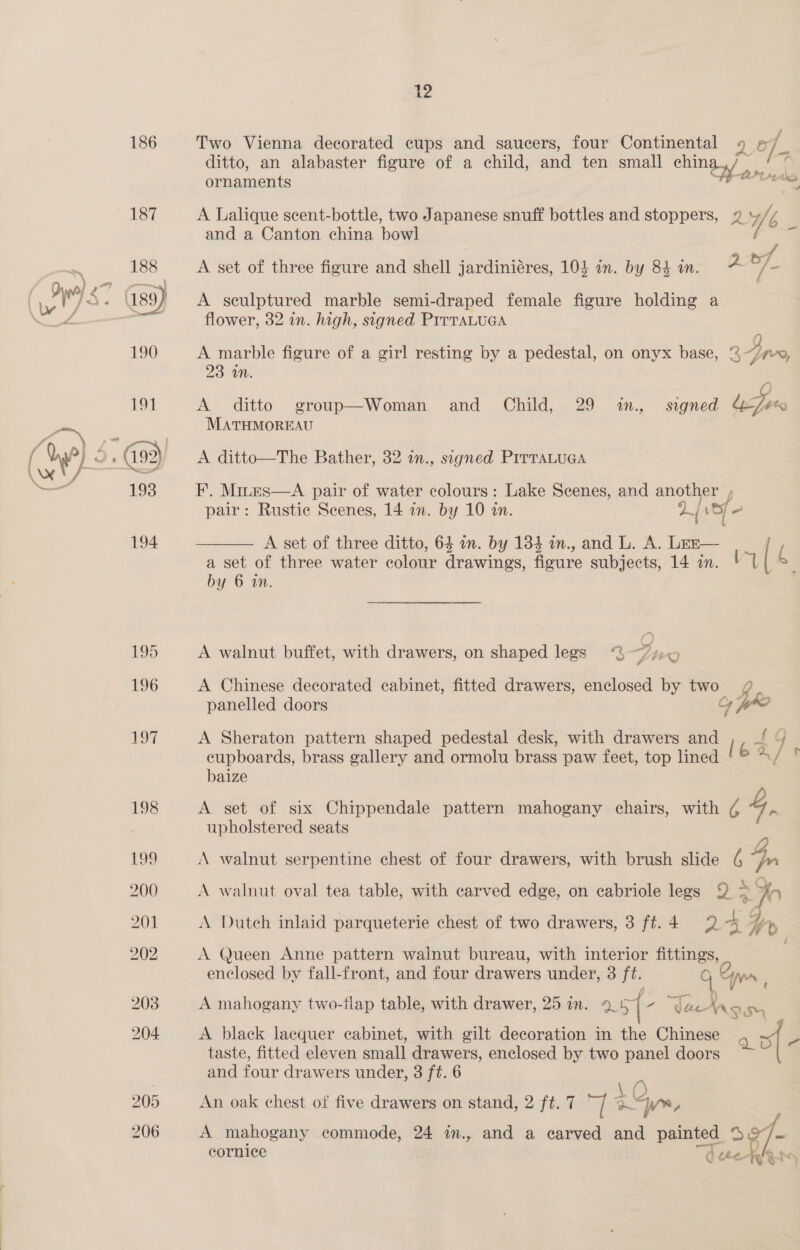 12
186 Two Vienna decorated cups and saucers, four Continental
ditto, an alabaster figure of a child, and ten small china
ornaments
187 A Lalique scent-bottle, two Japanese snuff bottles and stoppers,
and a Canton china bowl
188 A set of three figure and shell jardiniéres, 10½ in. by 8½ in.
189 A sculptured marble semi-draped female figure holding a
flower, 32 in. high, signed PITTALUGA
190 A marble figure of a girl resting by a pedestal, on onyx base,
23 in.
191 A ditto group—Woman and Child, 29 in., signed
MATHMOREAU
192 A ditto—The Bather, 32 in., signed PITTALUGA
193 F. MILES—A pair of water colours: Lake Scenes, and another
pair: Rustic Scenes, 14 in. by 10 in.
194 ——— A set of three ditto, 6½ in. by 13½ in., and L. A. LEE—
a set of three water colour drawings, figure subjects, 14 in.
by 6 in.
195 A walnut buffet, with drawers, on shaped legs
196 A Chinese decorated cabinet, fitted drawers, enclosed by two
panelled doors
197 A Sheraton pattern shaped pedestal desk, with drawers and
cupboards, brass gallery and ormolu brass paw feet, top lined
baize
198 A set of six Chippendale pattern mahogany chairs, with
upholstered seats
199 A walnut serpentine chest of four drawers, with brush slide
200 A walnut oval tea table, with carved edge, on cabriole legs
201 A Dutch inlaid parqueterie chest of two drawers, 3 ft. 4
202 A Queen Anne pattern walnut bureau, with interior fittings,
enclosed by fall-front, and four drawers under, 3 ft.
203 A mahogany two-flap table, with drawer, 25 in.
204 A black lacquer cabinet, with gilt decoration in the Chinese
taste, fitted eleven small drawers, enclosed by two panel doors
and four drawers under, 3 ft. 6
205 An oak chest of five drawers on stand, 2 ft. 7
206 A mahogany commode, 24 in., and a carved and painted
cornice